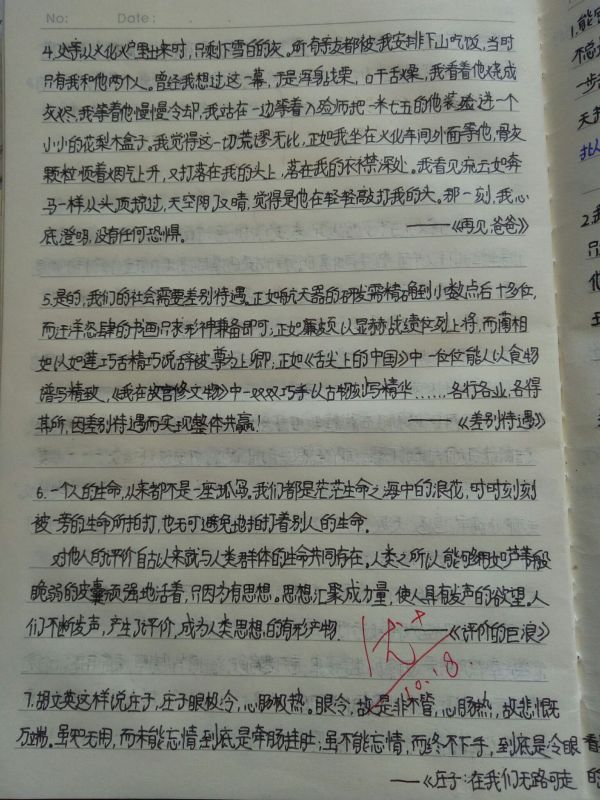 No:          Date:
4.爷爷从火化炉里出来时,只剩下雪白的灰。所有亲友都被我安排下山吃饭,当时
只有我和他两个人。曾经我想过这一幕,于是浑身战栗,口干舌燥。我看着他烧成
灰烬,我等着他慢慢冷却,我站在一边等着入殓师把一米七五的他装殓进一个
小小的花梨木盒子。我觉得这一切荒谬无比,正如我坐在火化车间外面等他,骨灰
颗粒顺着烟气上升,又打落在我的头上,落在我的衣襟深处。我看见流云如奔
马一样从头顶掠过,天空阴了又晴,觉得是他在轻轻敲打我的头。那一刻,我心
底澄明,没有任何恐惧。 ——《再见,爸爸》
5.是的,我们的社会需要差别待遇。正如航天器的研发需精确到小数点后十多位,
而汪洋恣肆的书画只求形神兼备即可;正如廉颇以显赫战绩位列上将,而蔺相
如以如莲巧舌精巧说辞被尊为上卿;正如《舌尖上的中国》中一位位能人以食物
谱写精致,《我在故宫修文物》中一双双巧手以古物刻写精华……各行各业,各得
其所,因差别待遇而实现整体共赢! ——《差别待遇》
6.一个人的生命,从来都不是一座孤岛。我们都是茫茫生命之海中的浪花,时时刻刻
被一旁的生命所拍打,也无可避免地拍打着别人的生命。
对他人的评价自古以来就与人类群体的生命共同存在,人类之所以能够拥如芦苇般
脆弱的皮囊顽强地活着,只因为有思想。思想汇聚成力量,使人具有发声的欲望。人
们不断发声,产生了评价,成为人类思想的有形产物. ——《评价的巨浪》
优+
10.18.
7.胡文英这样说庄子,庄子眼极冷,心肠极热。眼冷,故是非不管,心肠热,故悲慨
万端。虽知无用,而未能忘情,到底是牵肠挂肚;虽不能忘情,而终不下手,到底是冷眼看
——《庄子:在我们无路可走的
1.能
不
一
天
2.我
只
他